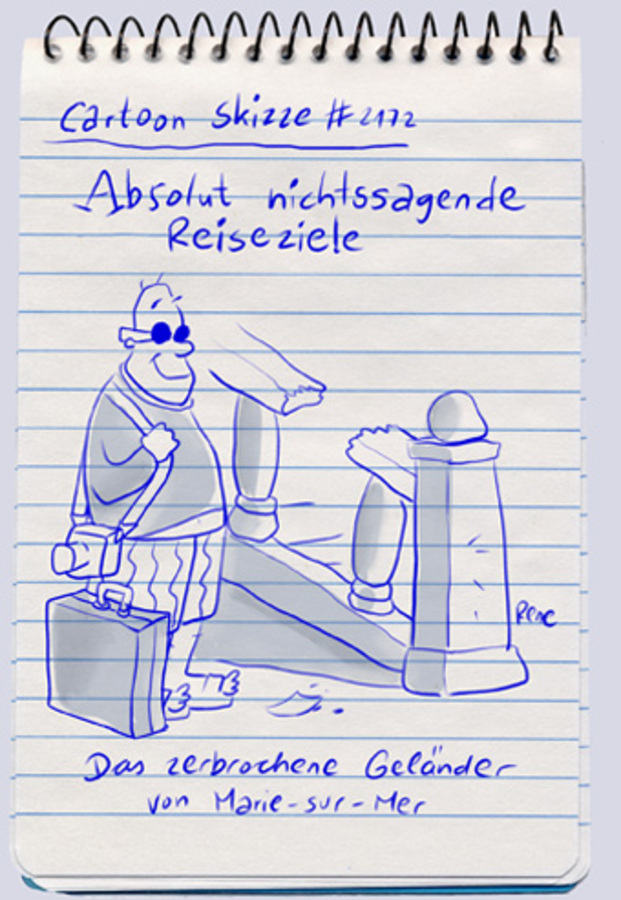 Cartoon Skizze #2172
Absolut nichtssagende
Reiseziele
Rene
Das zerbrochene Geländer
von Marie-sur-Mer